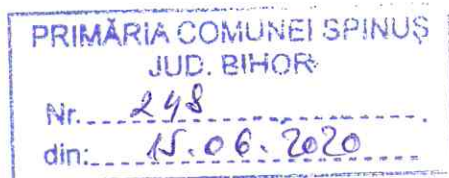 PRIMĂRIA COMUNEI SPINUȘ
JUD. BIHOR
Nr. 248
din: 15.06.2020